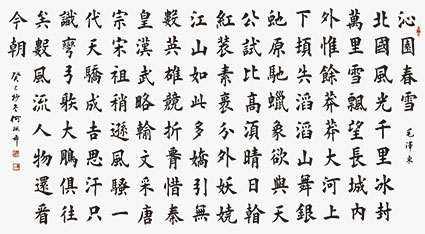 沁園春雪
毛澤東
北國風光千里冰封
萬里雪飄望長城內
外惟餘莽莽大河上
下頓失滔滔山舞銀
蛇原馳蠟象欲與天
公試比高須晴日看
紅裝素裹分外妖嬈
江山如此多嬌引無
數英雄競折腰惜秦
皇漢武略輸文采唐
宗宋祖稍遜風騷一
代天驕成吉思汗只
識彎弓射大鵰俱往
矣數風流人物還看
今朝
癸巳